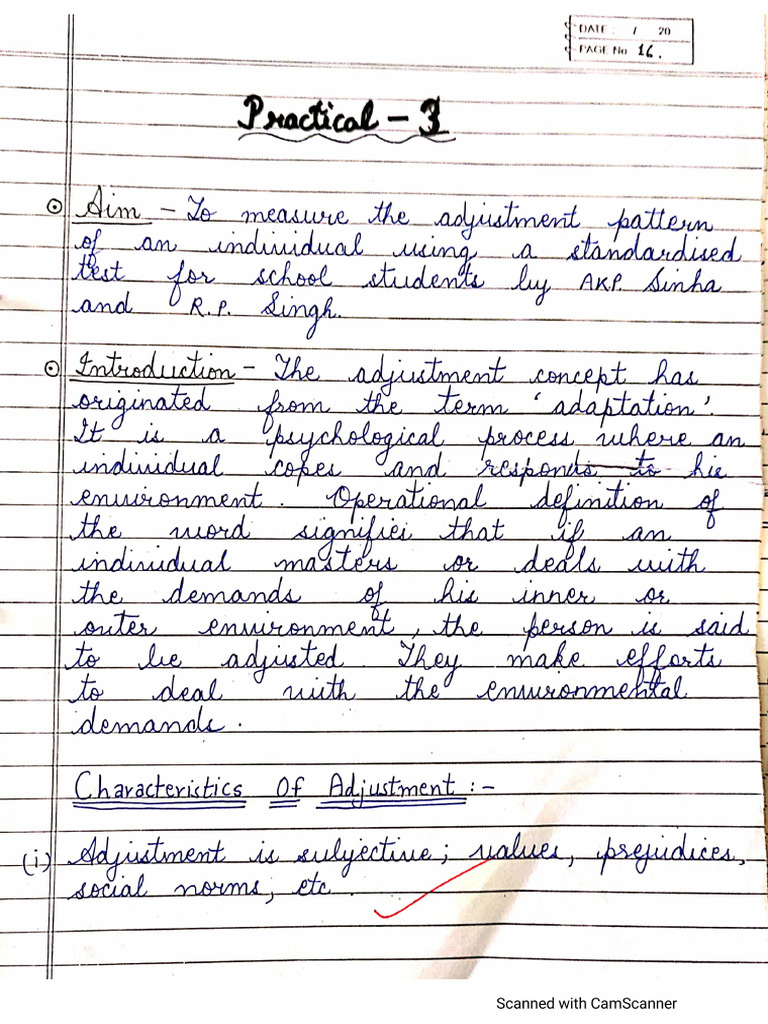 DATE : / 20
PAGE No 16.
Practical -
Aim - To measure the adjustment pattern
of an individual using a standardised
test for school students by AKP. Sinha
and R.P. Singh.
Introduction - The adjustment concept has
originated from the term 'adaptation'.
It is a psychological process where an
individual copes and responds to his
environment. Operational definition of
the word signifies that if an
individual masters or deals with
the demands of his inner or
outer environment, the person is said
to be adjusted. They make efforts
to deal with the environmental
demands.
Characteristics Of Adjustment :-
(i) Adjustment is subjective; values, prejudices,
social norms, etc.
Scanned with CamScanner